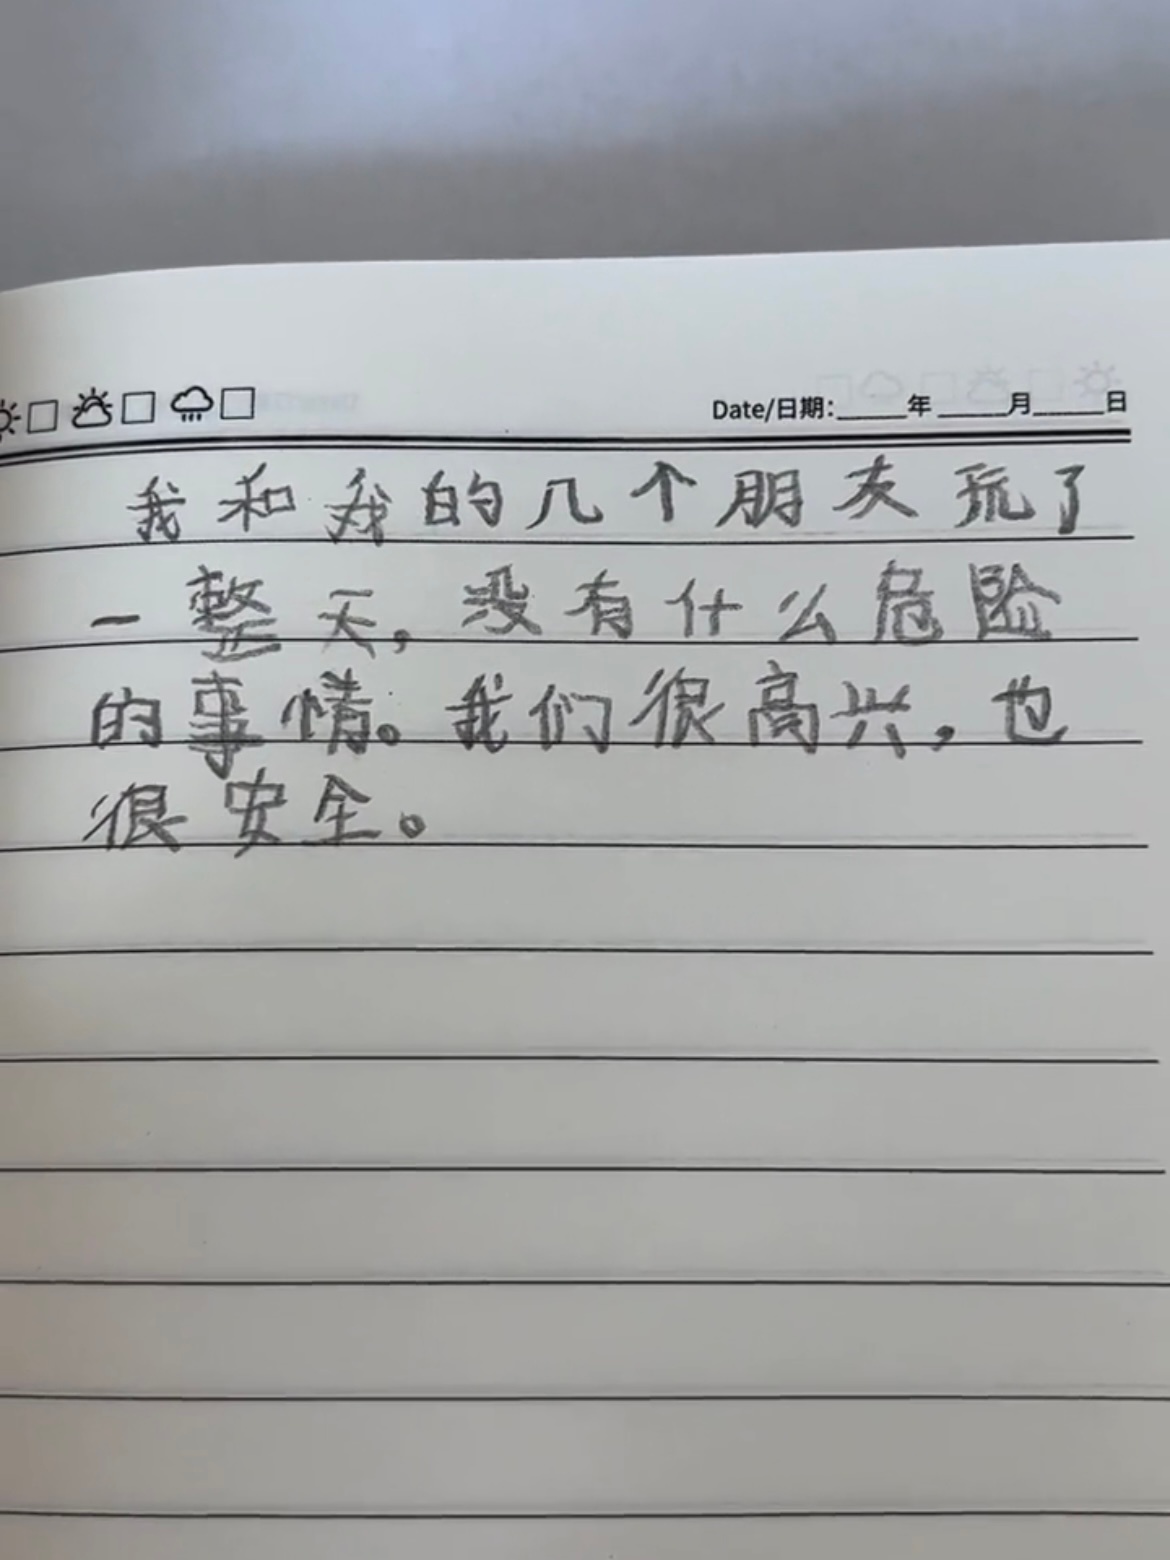 Date/日期：_____年_____月_____日
我和我的几个朋友玩了
一整天，没有什么危险
的事情。我们很高兴，也
很安全。